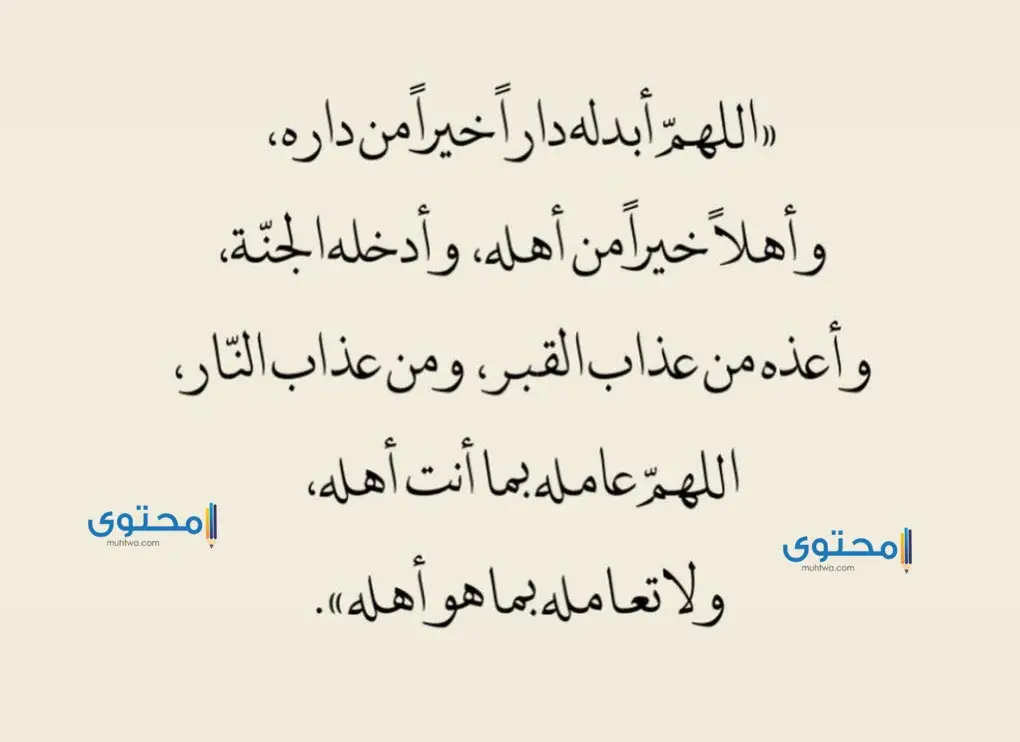 «اللهمّ أبدله داراً خيراً من داره،
وأهلاً خيراً من أهله، وأدخله الجنّة،
وأعذه من عذاب القبر، ومن عذاب النّار،
اللهمّ عامله بما أنت أهله،
محتوى
muhtwa.com
محتوى
muhtwa.com
ولا تعامله بما هو أهله».